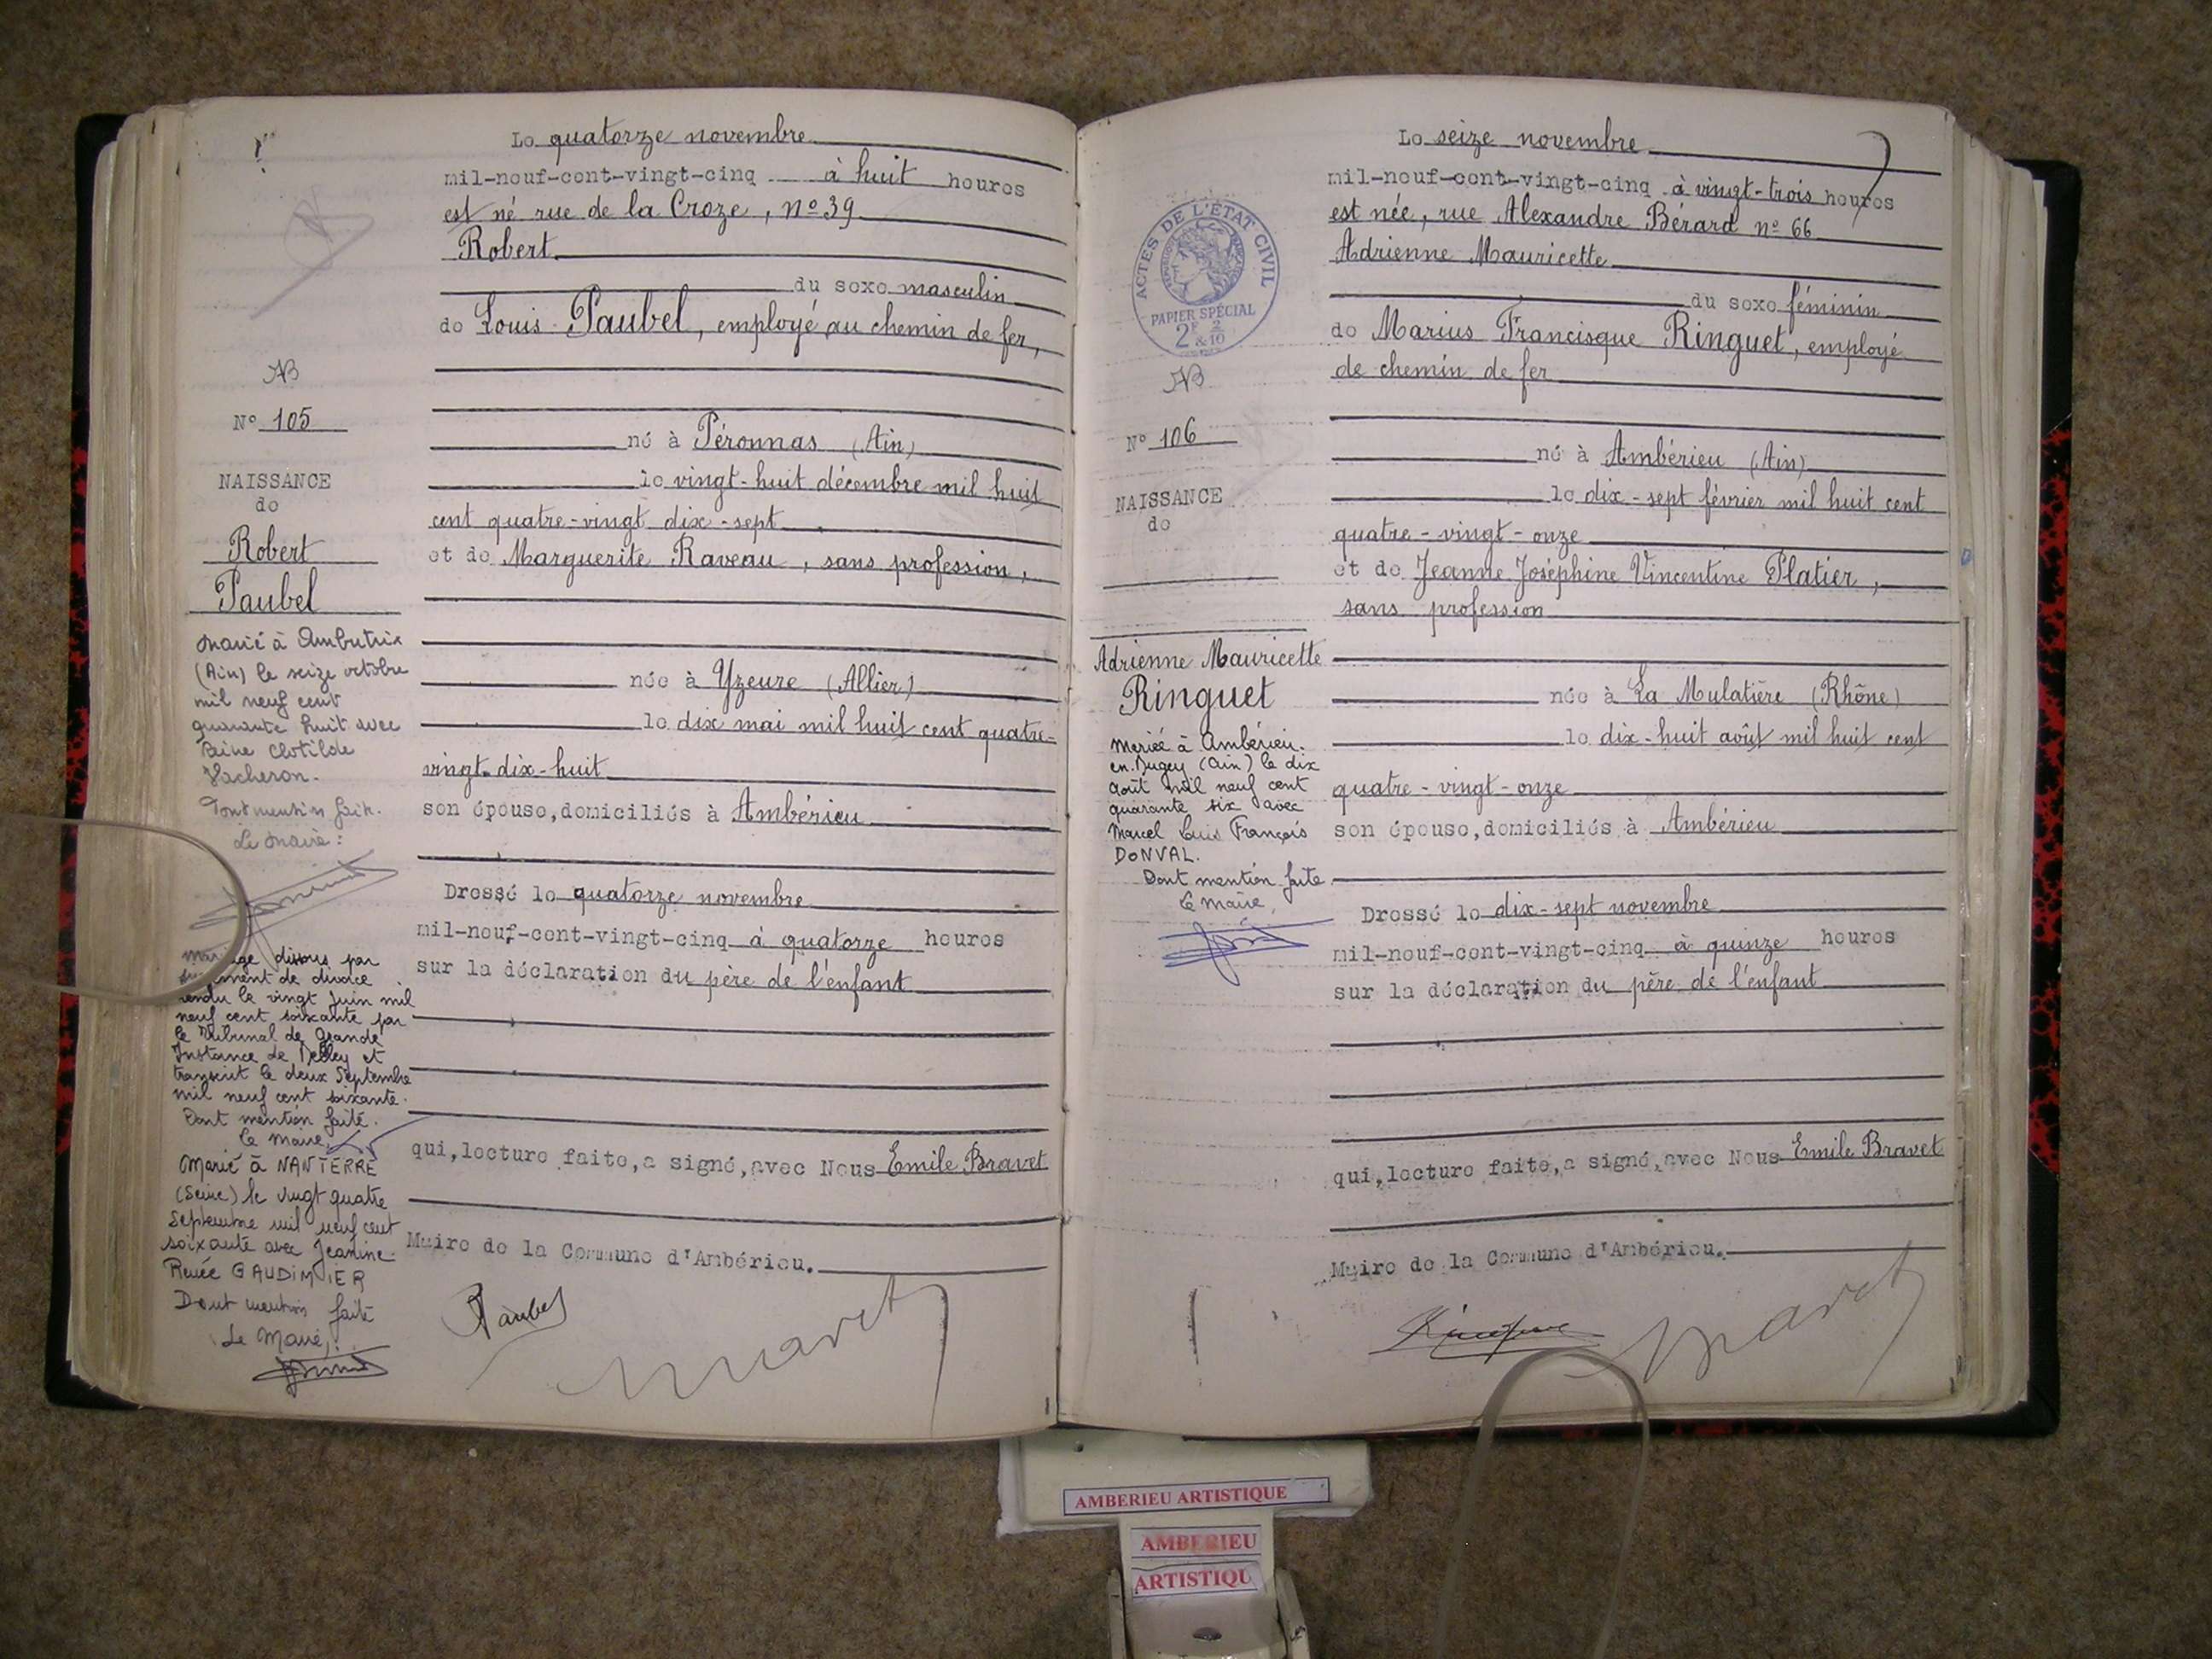 Le quatorze novembre
mil-neuf-cent-vingt-cinq à huit heures
est né rue de la Croze, nº 39
Robert
du sexe masculin
de Louis Paubel, employé au chemin de fer,
né à Péronnas (Ain)
le vingt-huit décembre mil huit
cent quatre-vingt dix-sept
et de Marguerite Raveau, sans profession,
née à Yzeure (Allier)
le dix mai mil huit cent quatre-
vingt-dix-huit
son épouse, domiciliés à Ambérieu
Dressé le quatorze novembre
mil-neuf-cent-vingt-cinq à quatorze heures
sur la déclaration du père de l'enfant
qui, lecture faite, a signé, avec Nous Emile Bravet
Maire de la Commune d'Ambérieu.
Paubel
Nº 105
NAISSANCE
de
Robert
Paubel
Marié à Ambutrix
(Ain) le seize octobre
mil neuf cent
quarante huit avec
Reine Clotilde
Vacheron.
Dont mention faite.
Le Maire:
Mariage dissous par
jugement de divorce
rendu le vingt juin mil
neuf cent soixante par
le Tribunal de Grande
Instance de Belley et
transcrit le deux Septembre
mil neuf cent soixante.
Dont mention faite.
Le Maire,
Marié à NANTERRE
(Seine) le vingt quatre
Septembre mil neuf cent
soixante avec Jeanine
Renée GAUDIMIER
Dont mention faite
Le Maire,
Le seize novembre
mil-neuf-cent-vingt-cinq à vingt-trois heures
est née, rue Alexandre Bérard nº 66
Adrienne Mauricette
du sexe féminin
de Marius Francisque Ringuet, employé
de chemin de fer
né à Ambérieu (Ain)
le dix-sept février mil huit cent
quatre-vingt-onze
et de Jeanne Joséphine Vincentine Platier,
sans profession
née à La Mulatière (Rhône)
le dix-huit août mil huit cent
quatre-vingt-onze
son épouse, domiciliés à Ambérieu
Dressé le dix-sept novembre
mil-neuf-cent-vingt-cinq à quinze heures
sur la déclaration du père de l'enfant
qui, lecture faite, a signé, avec Nous Emile Bravet
Maire de la Commune d'Ambérieu.
ACTES DE L'ÉTAT CIVIL
PAPIER SPÉCIAL
2F 2/10
Nº 106
NAISSANCE
de
Adrienne Mauricette
Ringuet
Mariée à Ambérieu-
en-Bugey (Ain) le dix
août mil neuf cent
quarante six avec
Marcel Louis François
DONVAL.
Dont mention faite.
Le Maire,
AMBERIEU ARTISTIQUE
AMBERIEU
ARTISTIQU